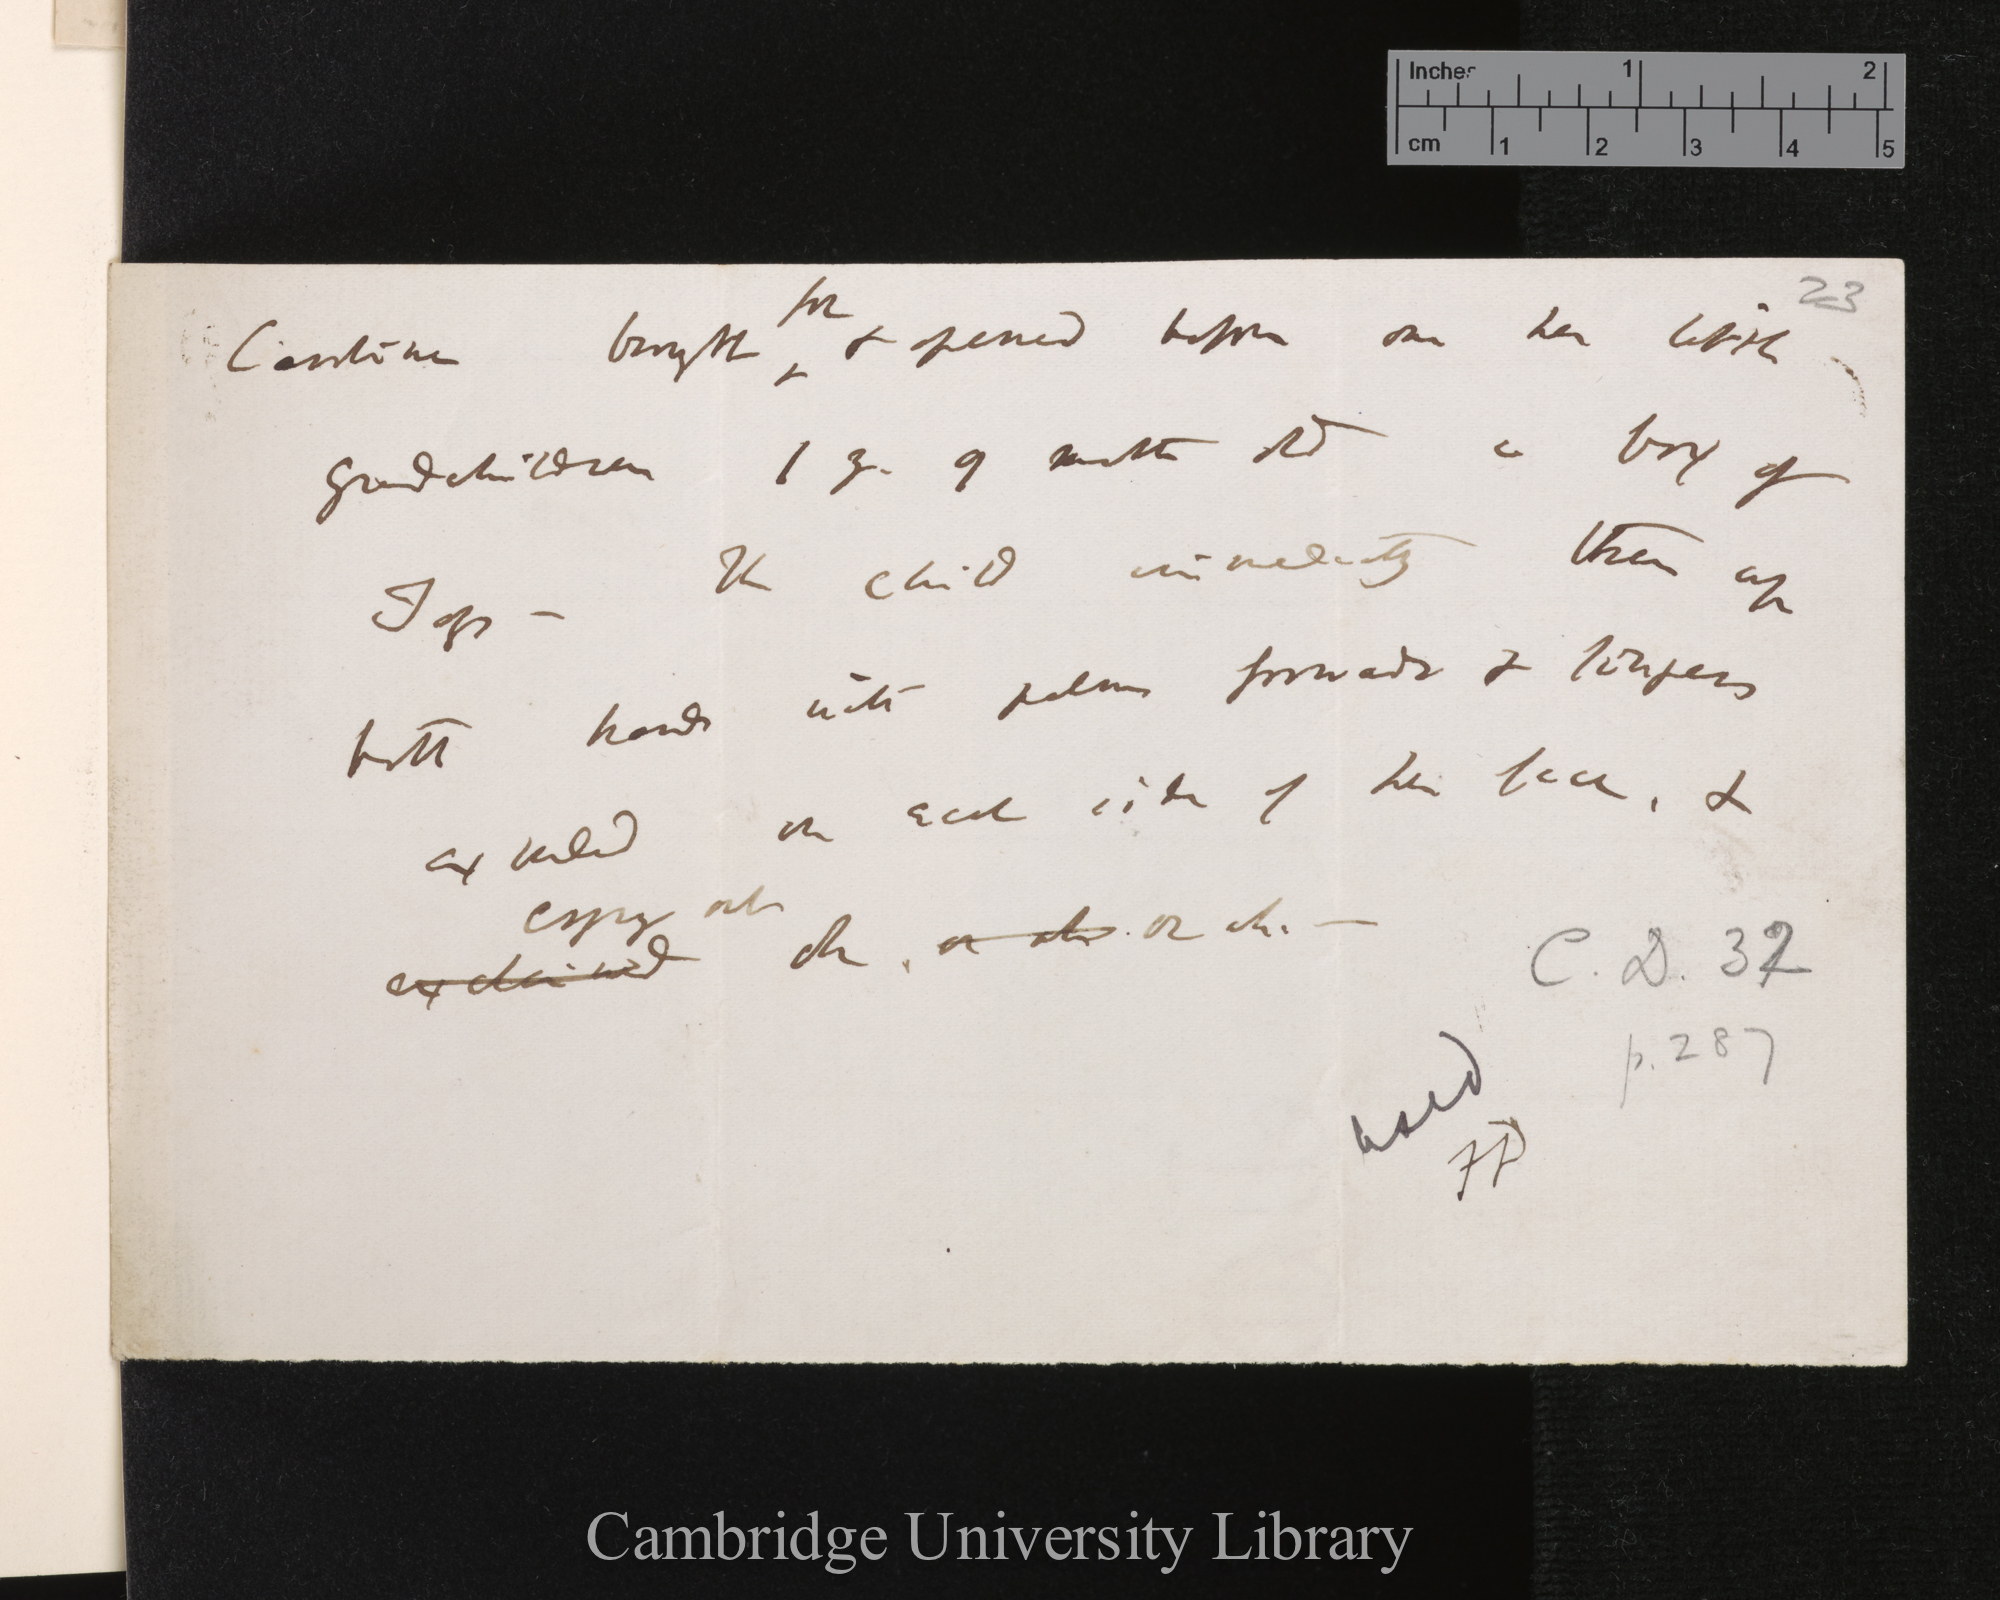 Inches 1 2
cm 1 2 3 4 5
23
for
Caroline brought & opened before one her little
grandchildren 1 yr. 9 month old a box of
Toys — The child immediately threw up
both hands with palms forwards & fingers
extended on each side of her face, &
crying out
exclaimed oh, or ah. or ah. —
C. D. 32
p. 287
used
FD
Cambridge University Library